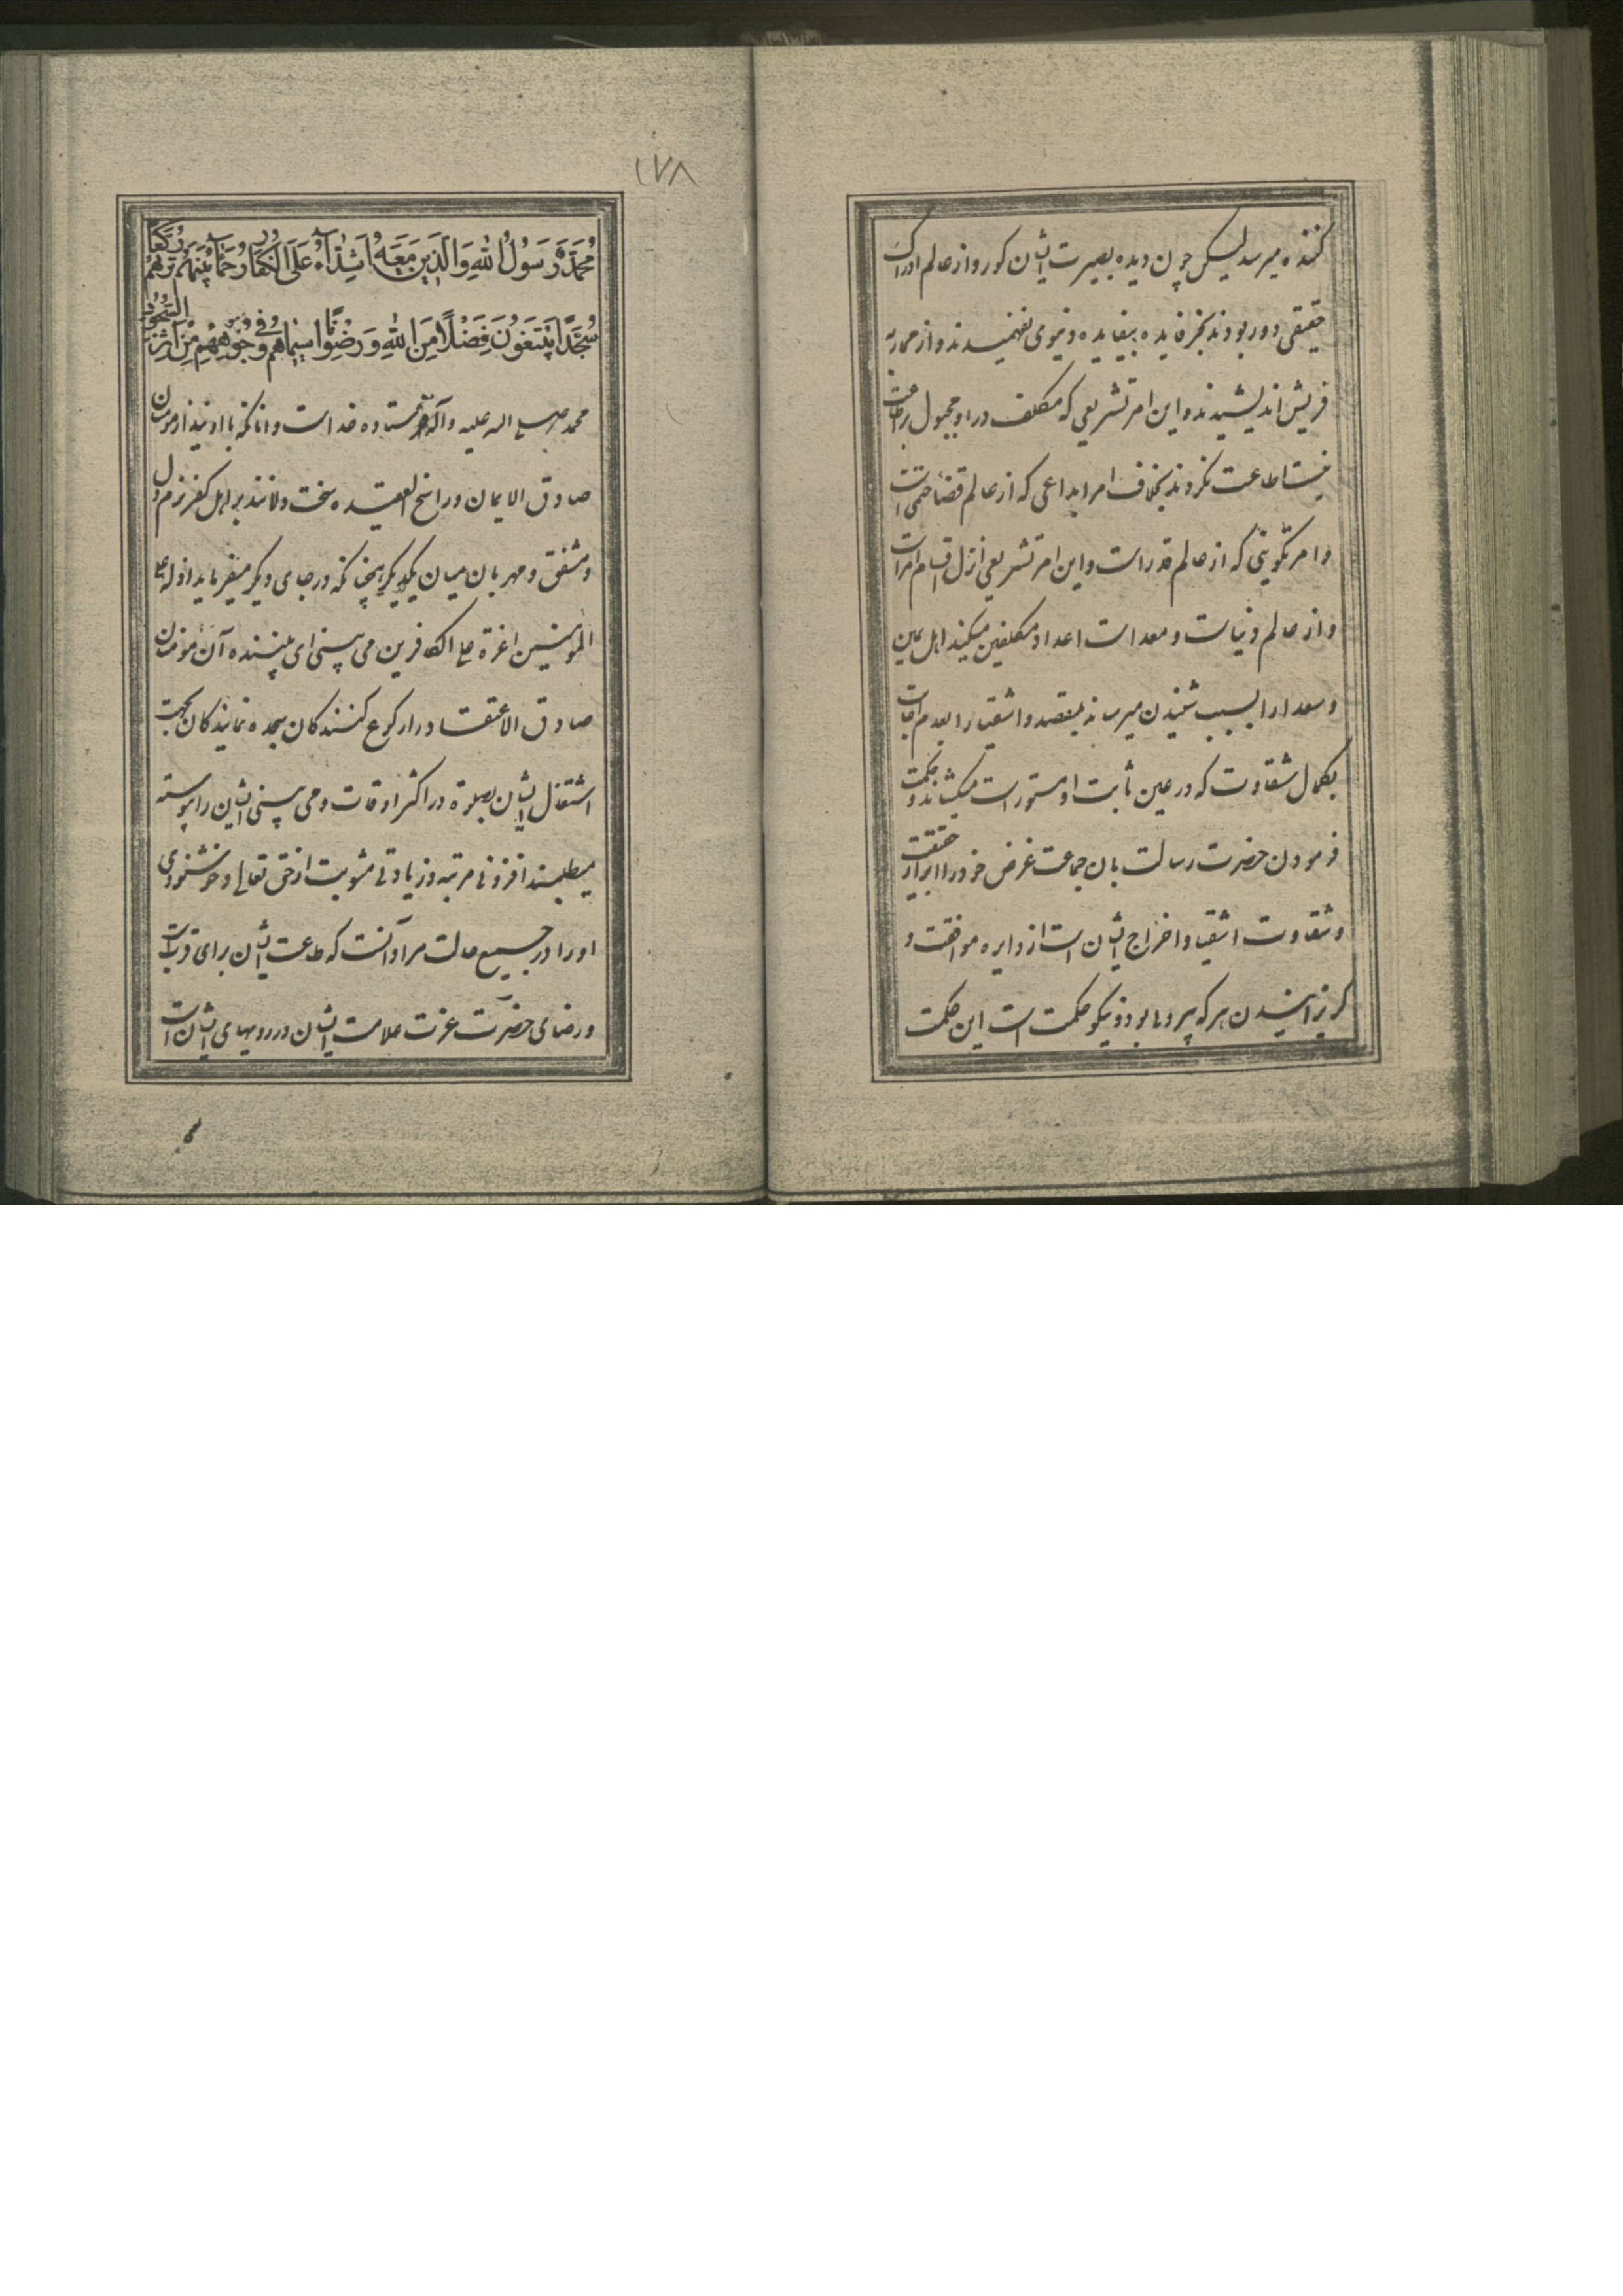 کننده میرسد لیکن چون دیده بصیرت ایشان کور و از عالم ادراک
حقیقی دور بودند بجز فایده بیفایده دنیوی نفهمیدند و از محاربه
قریش اندیشیدند و این امر تشریعی که مکلف در او مجبول بر اطاعت
نیست اطاعت نکردند بخلاف امر ابداعی که از عالم قضا حتمی است
و امر تکوینی که از عالم قدر است و این امر تشریعی انزل اقسام امر است
و از عالم دنیاست و معد است اعداد مکلفین میکند اهل یمین
و سعدا را بسبب شنیدن میرساند بمقصد و اشقیا را بعدم اجابت
بکمال شقاوت که در عین ثابت او مستور است میکشاند و حکمت
فرمودن حضرت رسالت بان جماعت غرض خود را ابراز حقیقت
و شقاوت اشقیا و اخراج ایشان است از دایره موافقت و
کریزانیدن هر که پیرو ما بود و نیکو حکمت است این حکمت
۱۷۸
مُحَمَّدٌ رَسُولُ اللّٰهِ وَالَّذِينَ مَعَهُ اَشِدَّاءُ عَلَى الْكُفَّارِ رُحَمَاءُ بَيْنَهُمْ تَرٰهُمْ رُكَّعًا
سُجَّدًا يَبْتَغُونَ فَضْلًا مِنَ اللّٰهِ وَرِضْوَانًا سِيمَاهُمْ فِي وُجُوهِهِمْ مِنْ اَثَرِ السُّجُودِ
محمد صلی اله علیه وآله فرستاده خداست و انانکه با اویند از مومنان
صادق الایمان و راسخ العقیده سخت دلانند بر اهل کفر نرم دل
و مشفق و مهربان میان یکدیگر همچنانکه در جای دیگر میفرماید اذلة علی
المومنین اعزة علی الکافرین می بینی ای بیننده آن مومنان
صادق الاعتقاد را رکوع کنندکان سجده نمایندکان بجهت
اشتغال ایشان بصلوة در اکثر اوقات و می بینی ایشان را پیوسته
میطلبند افزونی مرتبه و زیادتی مثوبت از حق تعالی و خوشنودی
او را در جمیع حالت مراد آنست که طاعت ایشان برای قربت
و رضای حضرت عزت علامت ایشان در رویهای ایشان است